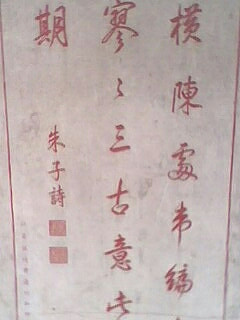 橫陳處韋編
寥〻三古意此
期
朱子詩